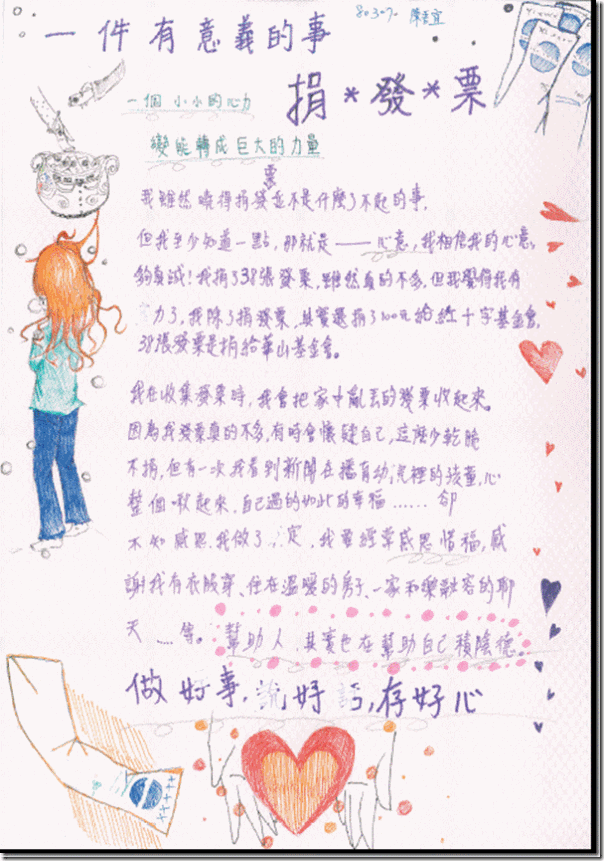 一件有意義的事 80307.
捐*發*票
一個 小小的心力
變能轉成巨大的力量
我雖然曉得捐發票並不是什麼了不起的事,
但我至少知道一點,那就是——心意,我相信我的心意,
夠真誠!我捐了38張發票,雖然真的不多,但我覺得我有
力了,我除了捐發票,其實還捐了100元給紅十字基金會,
38張發票是捐給華山基金會。
我在收集發票時,我會把家中亂丟的發票收起來。
因為我發票真的不多,有時會懷疑自己,這麼少乾脆
不捐,但有一次我看到新聞在播育幼院裡的孩童,心
整個揪起來,自己過的如此的幸福......卻
不知感恩.我做了 定,我要經常感恩惜福,感
謝我有衣服穿、住在溫暖的房子、一家和樂融容的聊
天.....等。幫助人,其實也在幫助自己積陰德。
做好事,說好話,存好心